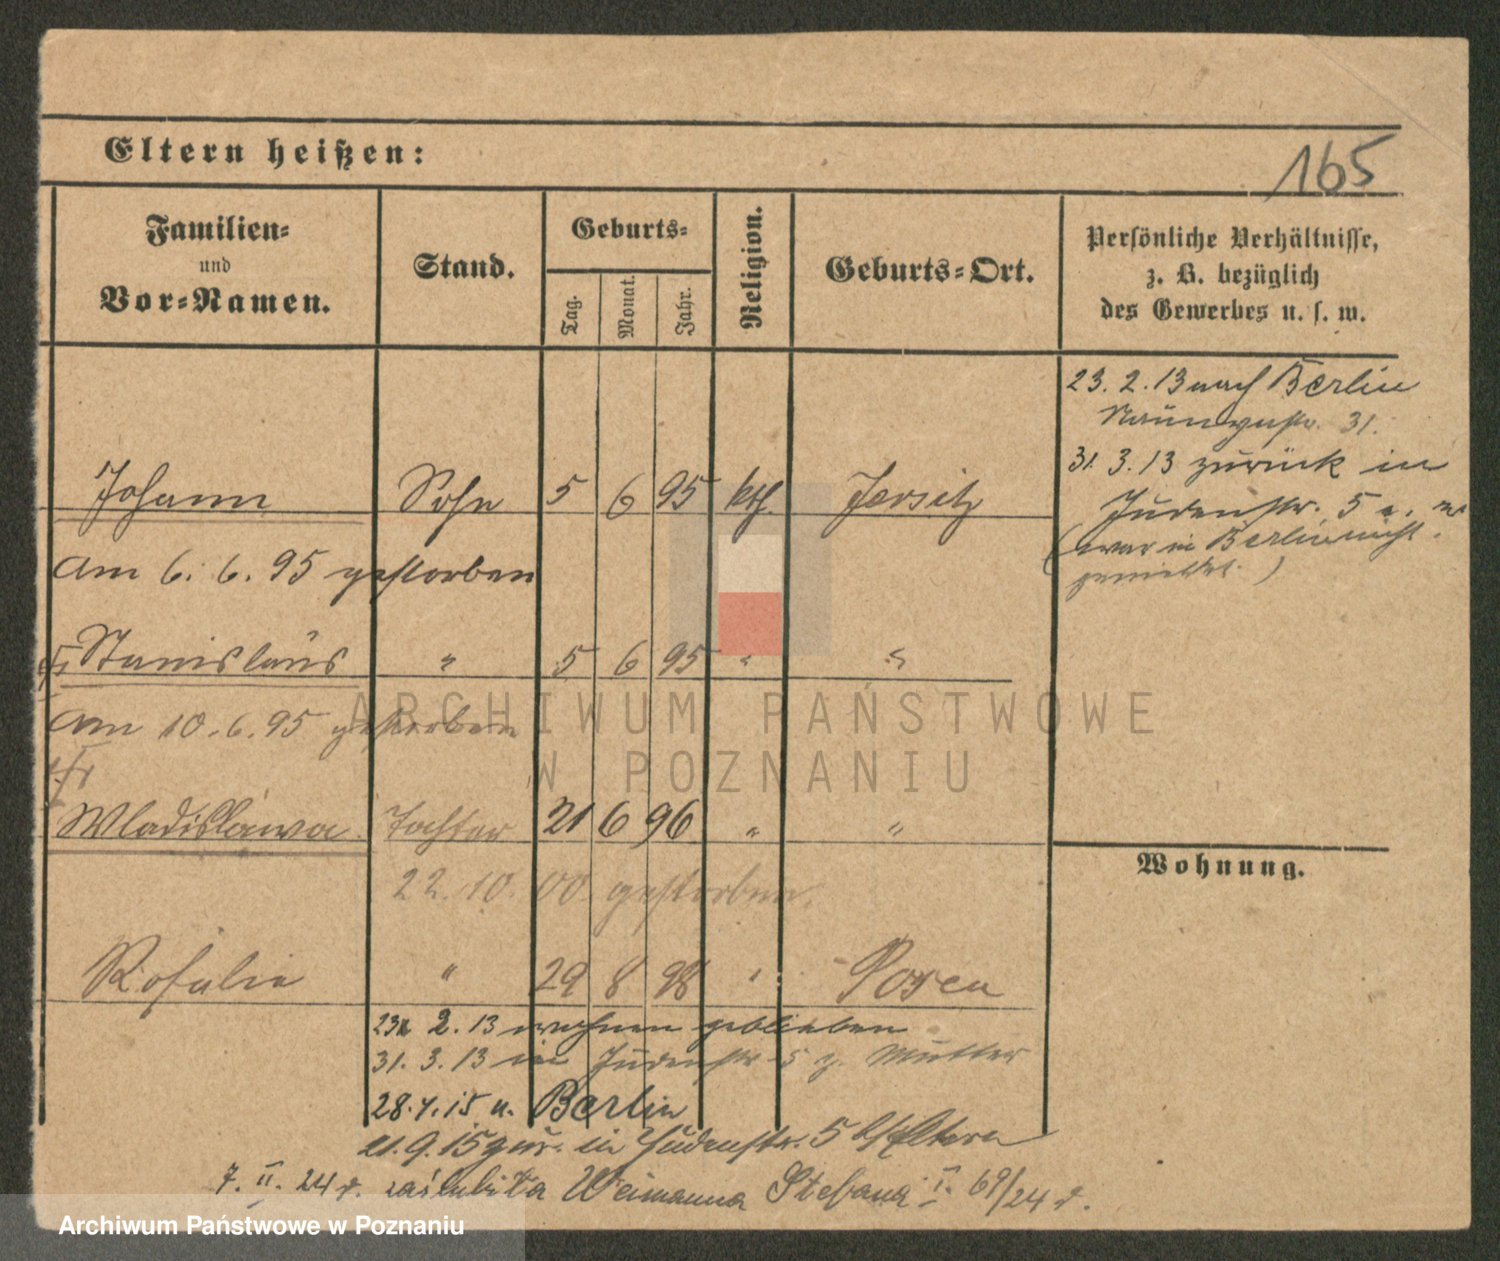 Eltern heißen:
165
Familien-
und
Vor-Namen.
Stand.
Geburts-
Tag.
Monat.
Jahr.
Religion.
Geburts-Ort.
Persönliche Verhältnisse,
z. B. bezüglich
des Gewerbes u. s. w.
23. 2. 13 nach Berlin
Naunynstr. 31.
31. 3. 13 zurück in
Judenstr. 5
(war in Berlin nicht
gemeldet.)
Johann Sohn 5 6 95 kth. Jersitz
am 6. 6. 95 gestorben
Stanislaus " 5 6 95 " "
am 10. 6. 95 gestorben
Wladislawa Tochter 21 6 96 " "
22. 10. 00 gestorben.
Rosalie " 29 8 98 " Posen
Wohnung.
23. 2. 13 wohnen geblieben
31. 3. 13 in Judenstr. 5 z. Mutter
28. 4. 15 n. Berlin
21. 9. 15 zur. in Judenstr. 5 b/Eltern
7. II. 24 r. zaślubiła Weimanna Stefana I. 69/24 r.
ARCHIWUM PAŃSTWOWE
W POZNANIU
Archiwum Państwowe w Poznaniu